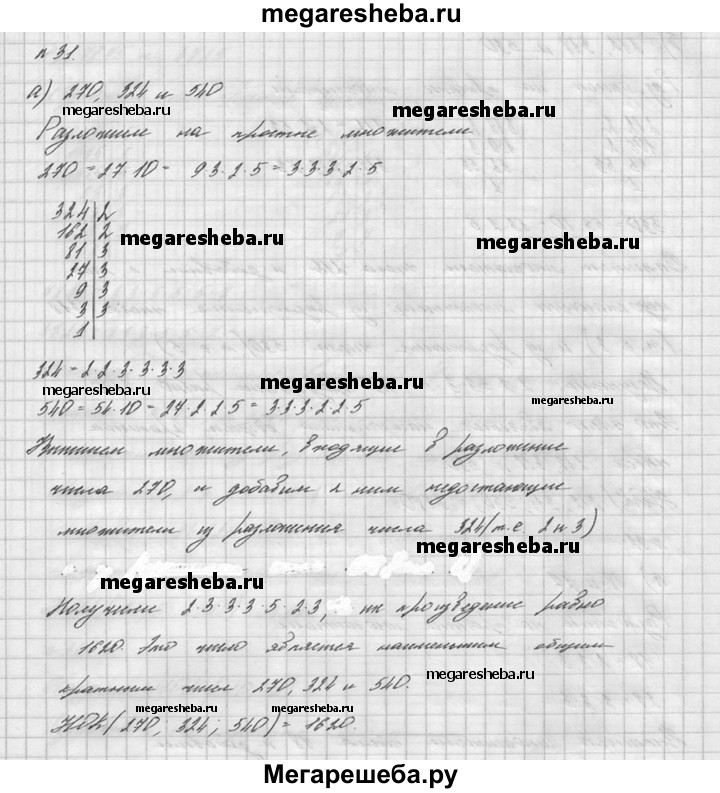 megaresheba.ru
n 31.
а) 270, 324 и 540
megaresheba.ru megaresheba.ru
Разложим на простые множители
270 = 27·10 = 9·3·2·5 = 3·3·3·2·5
324|2
162|2
81|3
27|3
9|3
3|3
1|
megaresheba.ru megaresheba.ru
324 = 2·2·3·3·3·3
megaresheba.ru megaresheba.ru megaresheba.ru
540 = 54·10 = 27·2·2·5 = 3·3·3·2·2·5
множители, входящие в разложение
числа 270, и добавим к ним недостающие
множители из разложения числа 324 (т.е. 2 и 3)
megaresheba.ru
megaresheba.ru
Получили 2·3·3·3·5·2·3, их произведение равно
1620. Это число является наименьшим общим
megaresheba.ru
кратным чисел 270, 324 и 540.
megaresheba.ru megaresheba.ru
НОК(270, 324; 540) = 1620.
Мегарешеба.ру